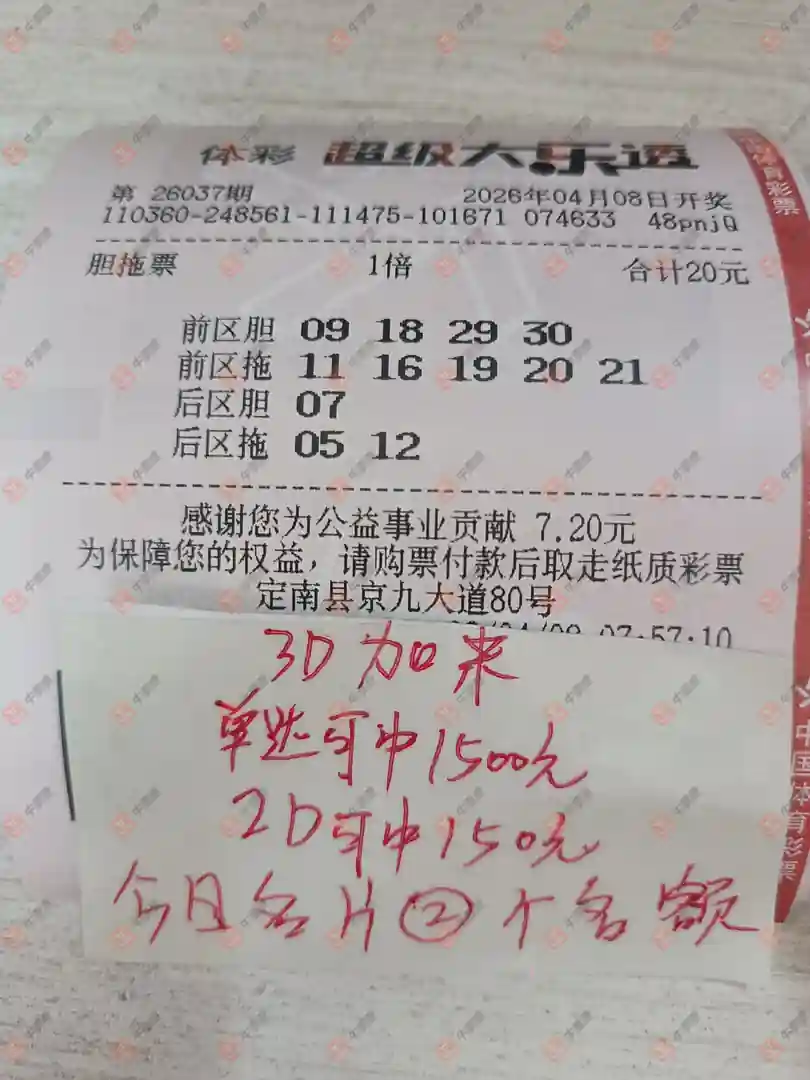 体彩 超级大乐透
第 26037期 2026年04月08日开奖
110360-248561-111475-101671 074633 48pnjQ
胆拖票 1倍 合计20元
前区胆 09 18 29 30
前区拖 11 16 19 20 21
后区胆 07
后区拖 05 12
感谢您为公益事业贡献 7.20元
为保障您的权益，请购票付款后取走纸质彩票
定南县京九大道80号
07:57:10
3D加来
单选可中1500元
2D可中150元
今日名片②个名额
体育彩票
中国体育彩票